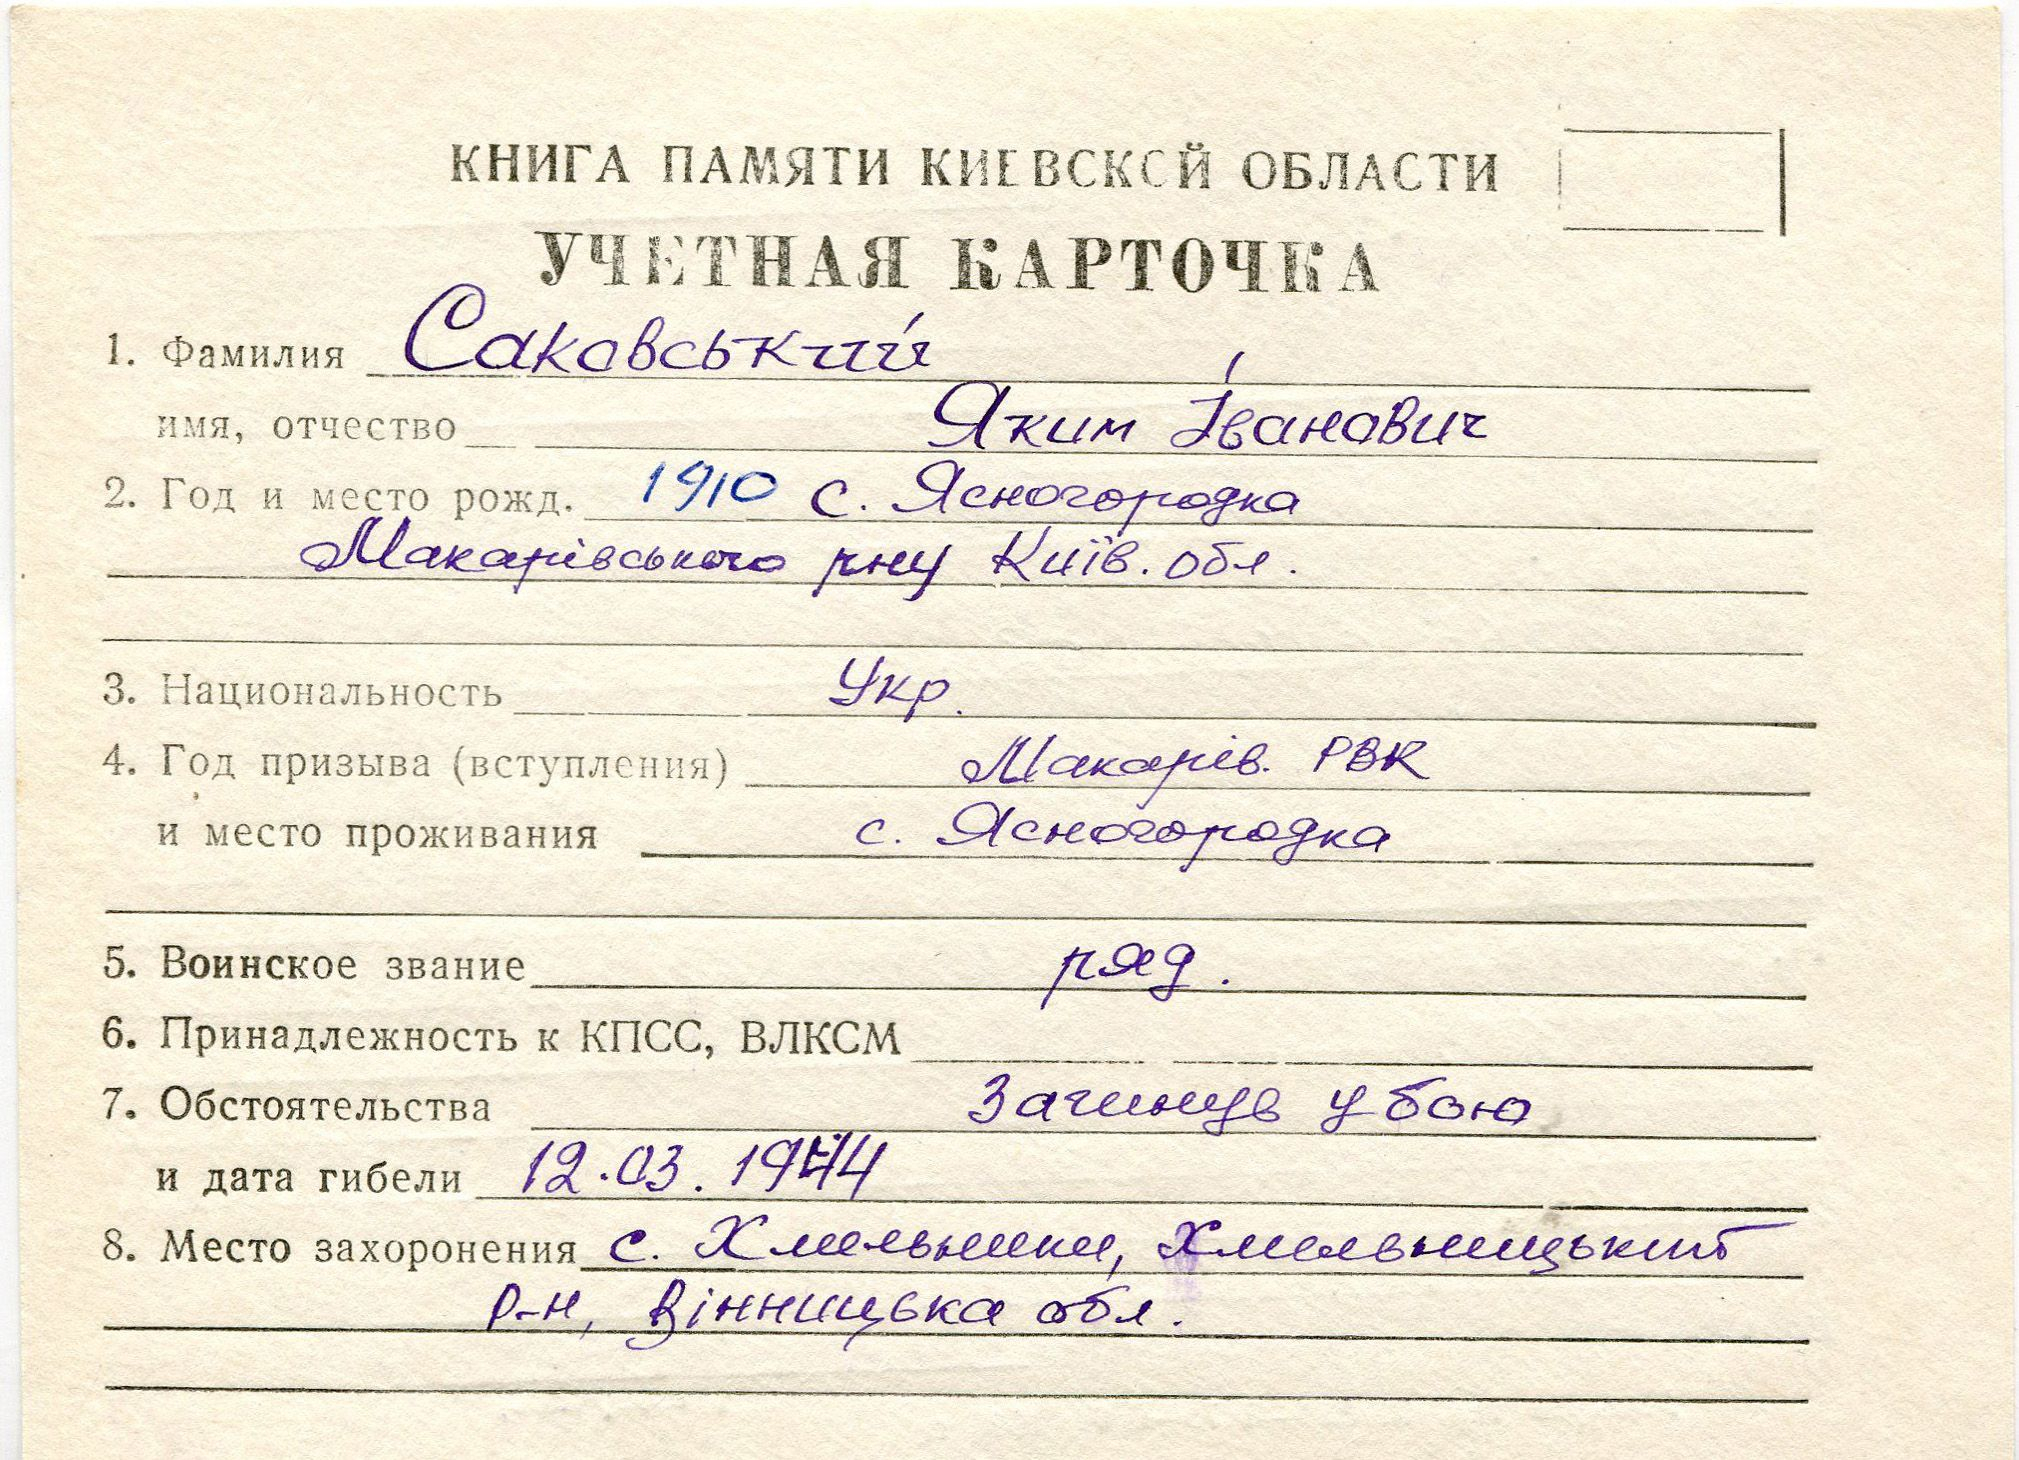 КНИГА ПАМЯТИ КИЕВСКОЙ ОБЛАСТИ
УЧЕТНАЯ КАРТОЧКА
1. Фамилия Саковський
имя, отчество Яким Іванович
2. Год и место рожд. 1910 с. Ясногородка
Макарівського рну Київ. обл.
3. Национальность Укр.
4. Год призыва (вступления) Макарів. РВК
и место проживания с. Ясногородка
5. Воинское звание ряд.
6. Принадлежность к КПСС, ВЛКСМ
7. Обстоятельства Загинув у бою
и дата гибели 12.03.1944
8. Место захоронения с. Хмельники, Хмельницький
р-н, Вінницька обл.